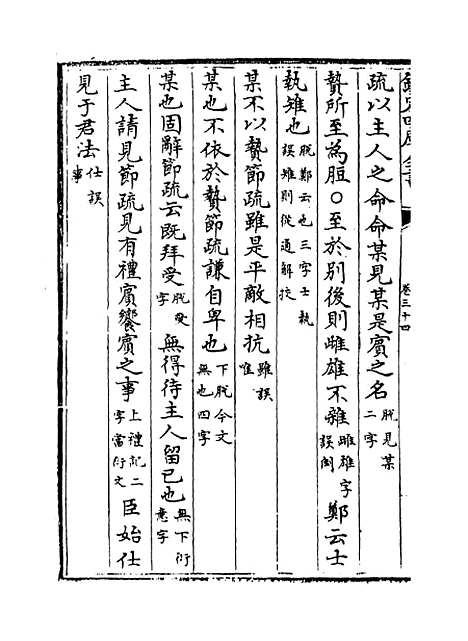 欽定四庫全書 卷三十四
疏以主人之命命某見某是賓之名脫見某二字
贄所至為脰○至於別後則雌雄不雜雌雄字誤鄭云士
執雉也脫鄭云也三字士執誤雉則從通解挍
某不以贄節疏雖是平敵相抗雖誤惟
某也不依於贄節疏謙自卑也下脫今文無也四字
某也固辭節疏云既拜受脫受字無得待主人留已也無下衍意字
主人請見節疏見有禮賓饗賓之事上禮記二字當衍文臣始仕
見于君法仕誤事